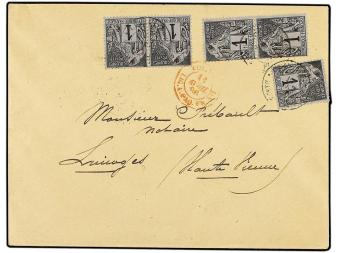 1 1 1 1
1
Monsieur Prébault
notaire
Limoges (Haute Vienne)